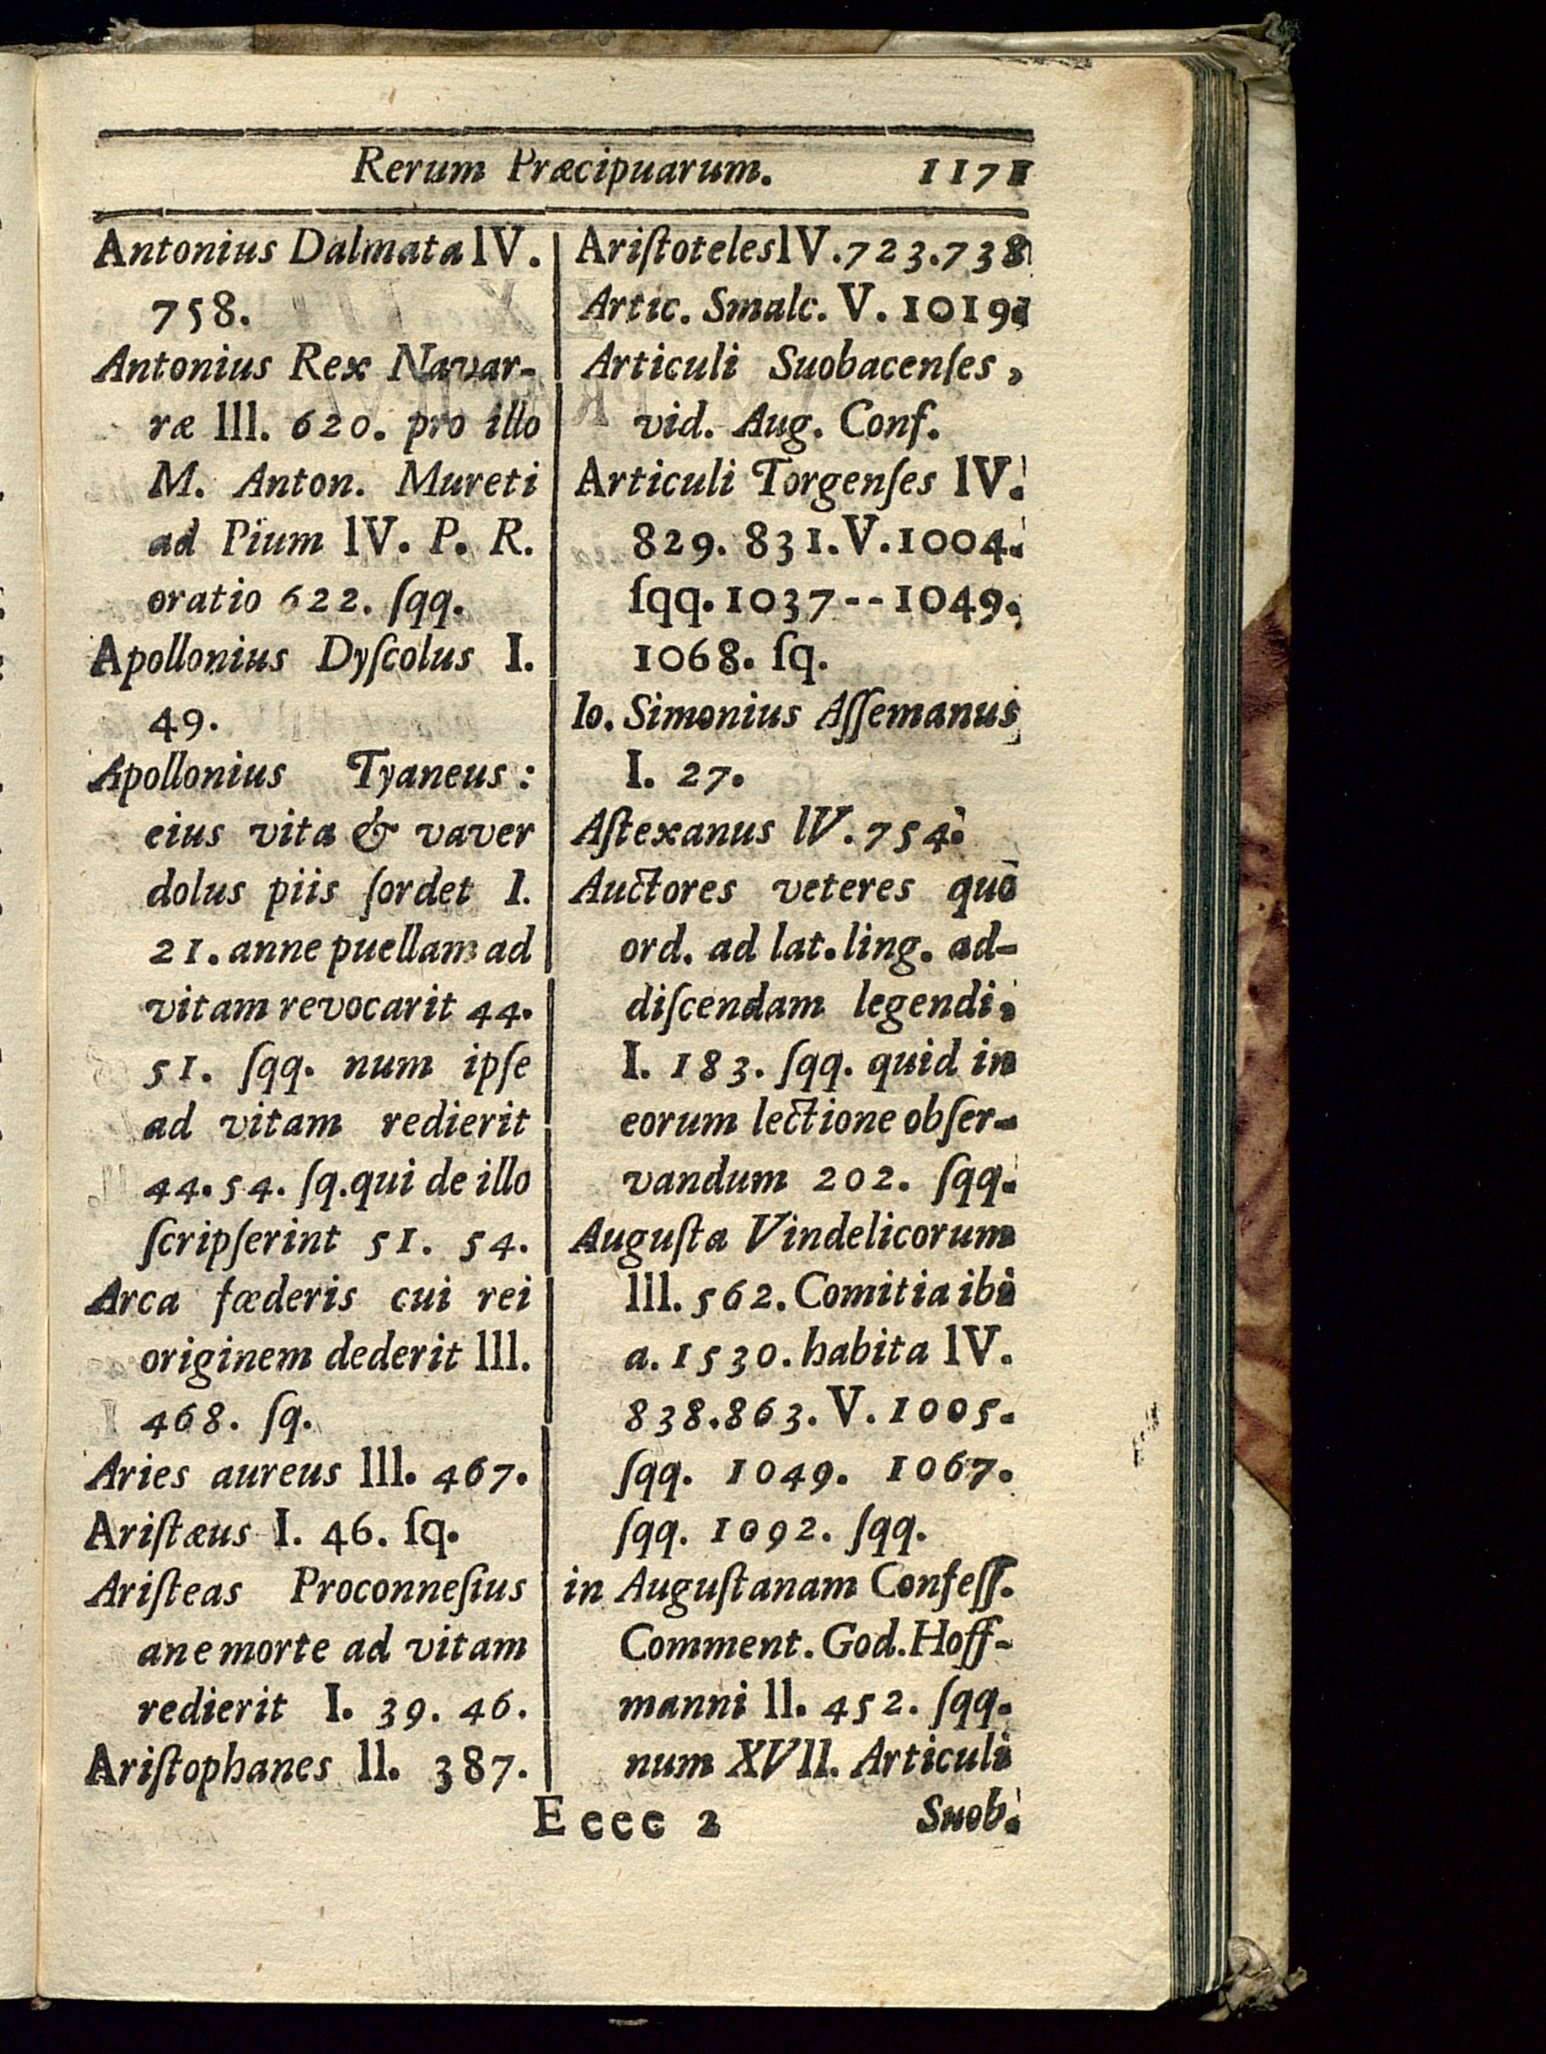 Rerum Præcipuarum. 1171
Antonius Dalmata IV.
758.
Antonius Rex Navar-
ræ III. 620. pro illo
M. Anton. Mureti
ad Pium IV. P. R.
oratio 622. ſqq.
Apollonius Dyſcolus I.
49.
Apollonius Tyaneus:
eius vita & vaver
dolus piis ſordet I.
21. anne puellam ad
vitam revocarit 44.
51. ſqq. num ipſe
ad vitam redierit
44. 54. ſq. qui de illo
ſcripſerint 51. 54.
Arca fœderis cui rei
originem dederit III.
468. ſq.
Aries aureus III. 467.
Ariſtæus I. 46. ſq.
Ariſteas Proconneſius
ane morte ad vitam
redierit I. 39. 46.
Ariſtophanes II. 387.
Ariſtoteles IV. 723. 738
Artic. Smalc. V. 1019.
Articuli Suobacenſes,
vid. Aug. Conf.
Articuli Torgenſes IV.
829. 831. V. 1004.
ſqq. 1037--1049.
1068. ſq.
Io. Simonius Aſſemanus
I. 27.
Aſtexanus IV. 754.
Auctores veteres quo
ord. ad lat. ling. ad-
diſcendam legendi.
I. 183. ſqq. quid in
eorum lectione obſer-
vandum 202. ſqq.
Auguſta Vindelicorum
III. 562. Comitia ibi
a. 1530. habita IV.
838. 863. V. 1005.
ſqq. 1049. 1067.
ſqq. 1092. ſqq.
in Auguſtanam Confeſſ.
Comment. God. Hoff-
manni II. 452. ſqq.
num XVII. Articuli
Eeee 2 Suob.